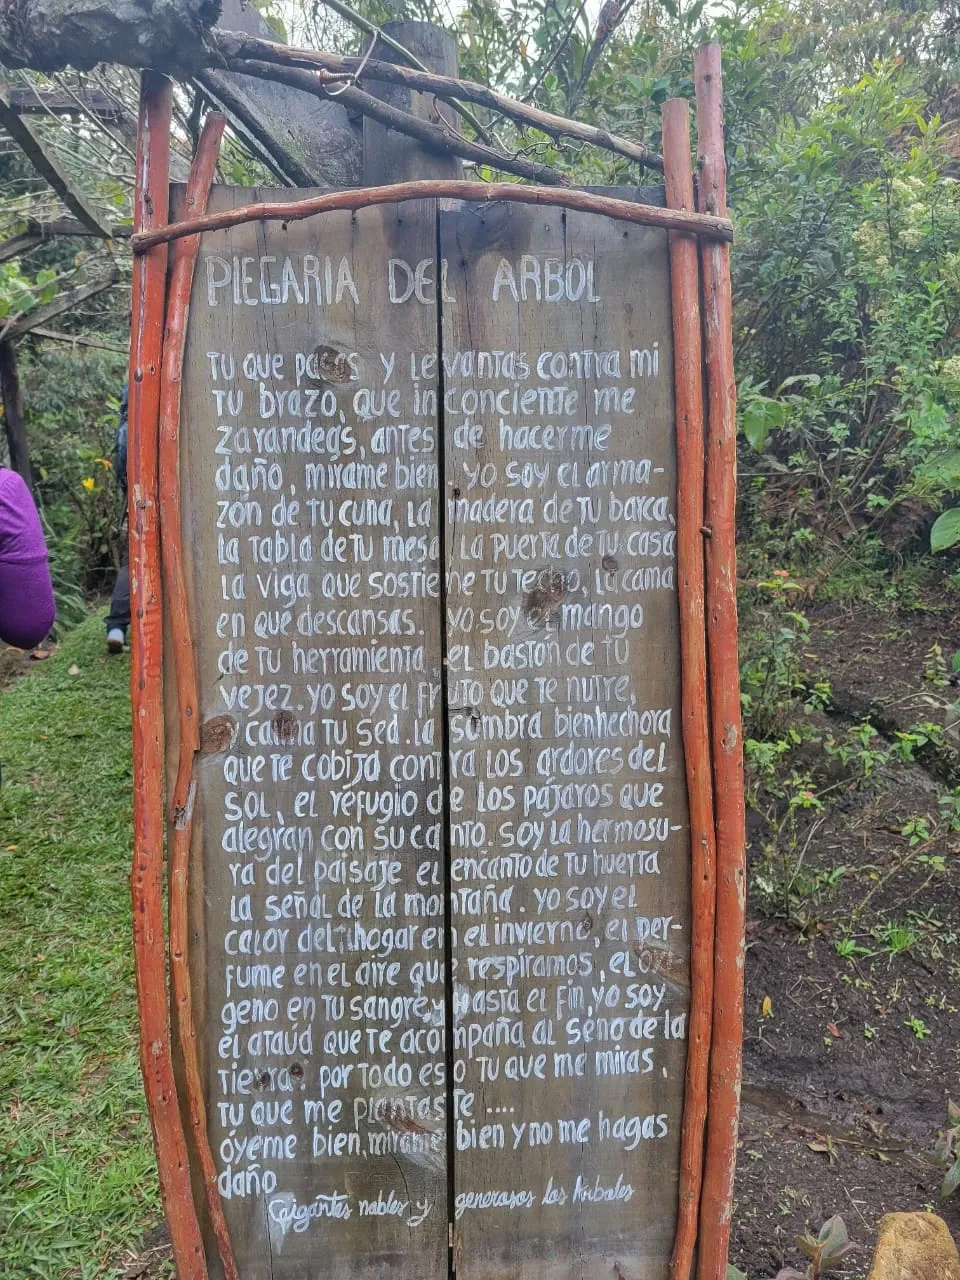 PLEGARIA DEL ARBOL
TU que pasas y levantas contra mi
TU brazo, que inconciente me
zarandeas, antes de hacerme
daño, mirame bien. yo soy el arma-
zón de TU cuna, La madera de TU barca,
la tabla de TU mesa La puerta de TU casa
La viga que sostiene TU Techo, La cama
en que descansas. yo soy el mango
de TU herramienta el bastón de TU
vejez. yo soy el fruto que Te nutre,
y calma TU sed. La sombra bienhechora
que Te cobija contra los ardores del
SOL, el refugio de los pájaros que
alegran con su canto. soy la hermosu-
ra del paisaje el encanto de TU huerta
La señal de la montaña. yo soy el
calor del hogar en el invierno, el per-
fume en el aire que respiramos, el oxi-
geno en TU sangre, y hasta el fin, yo soy
el ataúd que Te acompaña al seno de la
Tierra. por Todo eso TU que me miras,
TU que me plantasTe ....
óyeme bien, mirame bien y no me hagas
daño
Gigantes nobles y generosos los Arboles